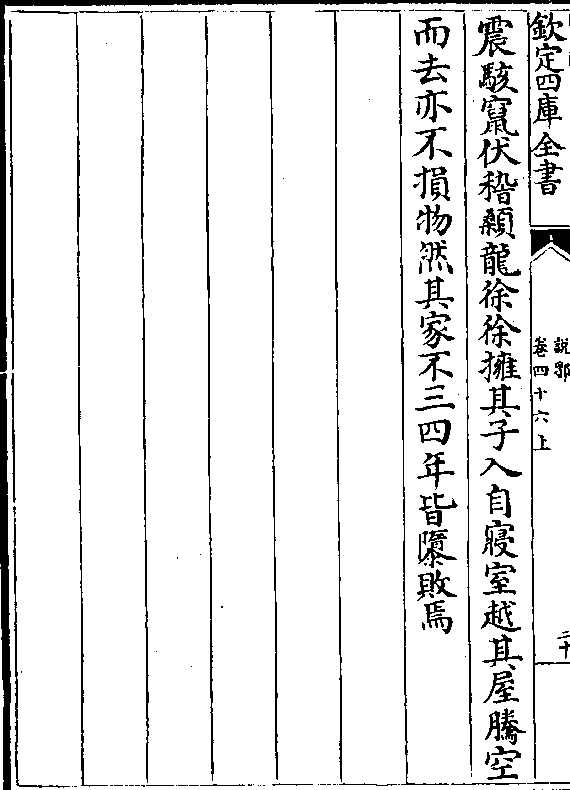 欽定四庫全書
說郛
卷四十六上
二十
震駭竄伏稽顙龍徐徐擁其子入自寢室越其屋騰空
而去亦不損物然其家不三四年皆隳敗焉